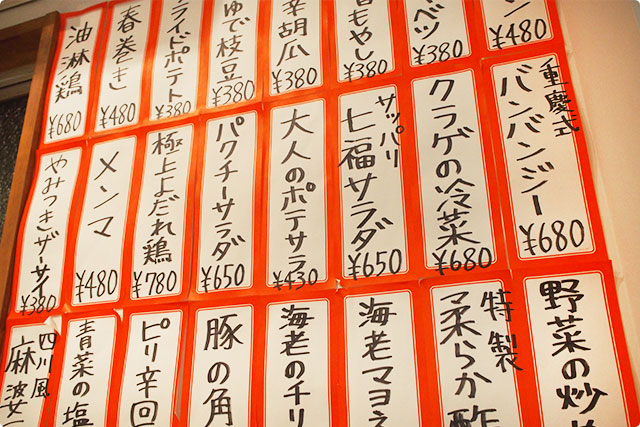 ン
¥480
ベツ
¥380
旨もやし
¥380
辛胡瓜
¥380
ゆで枝豆
¥380
ライドポテト
¥380
春巻き
¥480
油淋鶏
¥680
重慶式
バンバンジー
¥680
クラゲの冷菜
¥680
サッパリ
七福サラダ
¥650
大人のポテサラ
¥430
パクチーサラダ
¥650
極上よだれ鶏
¥780
メンマ
¥480
やみつきザーサイ
¥380
野菜の炒
特製
柔らか酢
海老マヨネ
海老のチリ
豚の角
ピリ辛回
青菜の塩
四川風
麻婆